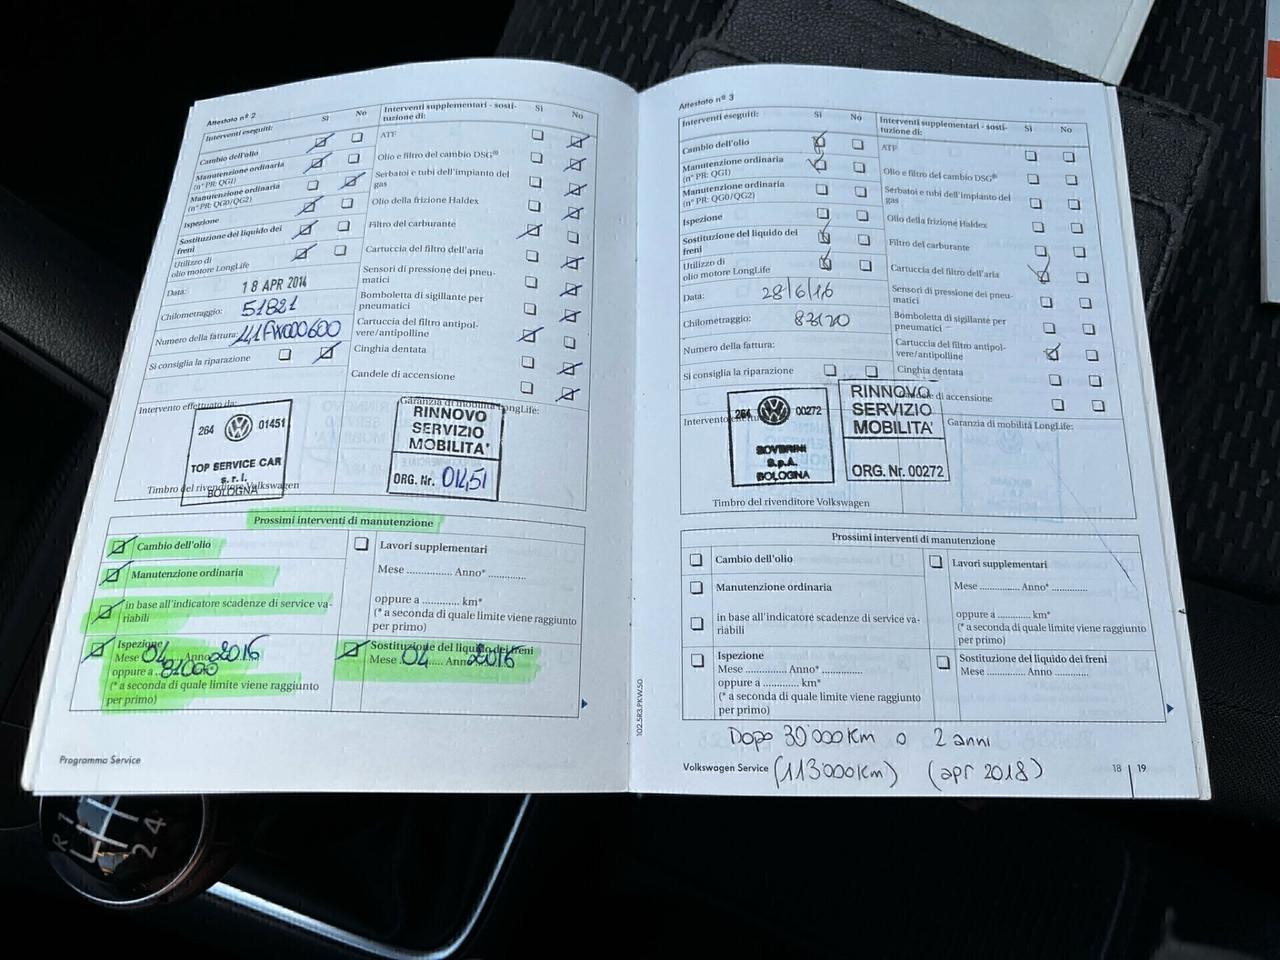 Attestato nº 2
Interventi eseguiti: Sì No
Cambio dell'olio
Manutenzione ordinaria
(nº PR: QG1)
Manutenzione ordinaria
(nº PR: QG0/QG2)
Ispezione
Sostituzione del liquido dei
freni
Utilizzo di
olio motore LongLife
Data: 18 APR 2014
Chilometraggio: 51821
Numero della fattura:
Si consiglia la riparazione
Interventi supplementari - sosti-
tuzione di: Sì No
ATF
Olio e filtro del cambio DSG®
Serbatoi e tubi dell'impianto del
gas
Olio della frizione Haldex
Filtro del carburante
Cartuccia del filtro dell'aria
Sensori di pressione dei pneu-
matici
Bomboletta di sigillante per
pneumatici
Cartuccia del filtro antipol-
vere/antipolline
Cinghia dentata
Candele di accensione
Intervento effettuato da:
264 01451
TOP SERVICE CAR
s.r.l.
BOLOGNA
Timbro del rivenditore Volkswagen
Garanzia di mobilità LongLife:
RINNOVO
SERVIZIO
MOBILITA'
ORG. Nr. 01451
Prossimi interventi di manutenzione
Cambio dell'olio
Manutenzione ordinaria
in base all'indicatore scadenze di service va-
riabili
Ispezione
Mese 04 Anno 2016
oppure a 81000
(* a seconda di quale limite viene raggiunto
per primo)
Lavori supplementari
Mese ............... Anno* .............
oppure a ............ km*
(* a seconda di quale limite viene raggiunto
per primo)
Sostituzione del liquido dei freni
Mese 04 Anno 2016
Programma Service
102.5R3.PKW.50
Attestato nº 3
Interventi eseguiti: Sì No
Cambio dell'olio
Manutenzione ordinaria
(nº PR: QG1)
Manutenzione ordinaria
(nº PR: QG0/QG2)
Ispezione
Sostituzione del liquido dei
freni
Utilizzo di
olio motore LongLife
Data: 28/6/16
Chilometraggio:
Numero della fattura:
Si consiglia la riparazione
Interventi supplementari - sosti-
tuzione di: Sì No
ATF
Olio e filtro del cambio DSG®
Serbatoi e tubi dell'impianto del
gas
Olio della frizione Haldex
Filtro del carburante
Cartuccia del filtro dell'aria
Sensori di pressione dei pneu-
matici
Bomboletta di sigillante per
pneumatici
Cartuccia del filtro antipol-
vere/antipolline
Cinghia dentata
di accensione
264 00272
S.p.A.
BOLOGNA
Timbro del rivenditore Volkswagen
RINNOVO
SERVIZIO
MOBILITA'
ORG. Nr. 00272
Garanzia di mobilità LongLife:
Prossimi interventi di manutenzione
Cambio dell'olio
Manutenzione ordinaria
in base all'indicatore scadenze di service va-
riabili
Ispezione
Mese ............... Anno* ...............
oppure a ............ km*
(* a seconda di quale limite viene raggiunto
per primo)
Lavori supplementari
Mese ............... Anno* .............
oppure a ............ km*
(* a seconda di quale limite viene raggiunto
per primo)
Sostituzione del liquido dei freni
Mese ............... Anno ...............
Dopo 30'000 Km o 2 anni
Volkswagen Service (113'000 Km) (apr 2018) 18 | 19
R 1
2 4